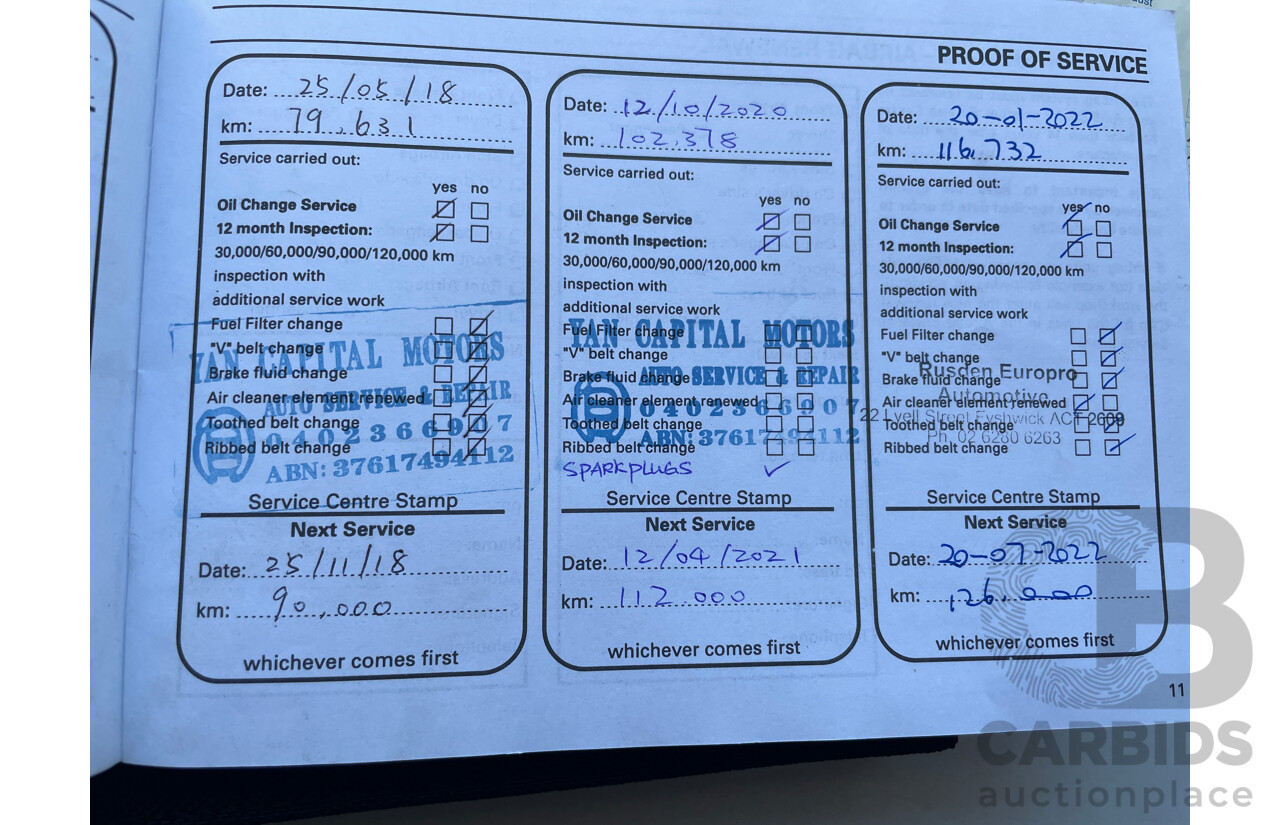 PROOF OF SERVICE
Date: 25/05/18
km: 79,631
Service carried out:
yes no
Oil Change Service
12 month Inspection:
30,000/60,000/90,000/120,000 km
inspection with
additional service work
Fuel Filter change
"V" belt change
Brake fluid change
Air cleaner element renewed
Toothed belt change
Ribbed belt change
YAN CAPITAL MOTORS
AUTO SERVICE & REPAIR
0402366907
ABN: 37617494112
Service Centre Stamp
Next Service
Date: 25/11/18
km: 90,000
whichever comes first
Date: 12/10/2020
km: 102,378
Service carried out:
yes no
Oil Change Service
12 month Inspection:
30,000/60,000/90,000/120,000 km
inspection with
additional service work
Fuel Filter change
"V" belt change
Brake fluid change
Air cleaner element renewed
Toothed belt change
Ribbed belt change
SPARKPLUGS ✓
YAN CAPITAL MOTORS
AUTO SERVICE & REPAIR
0402366907
ABN: 37617494112
Service Centre Stamp
Next Service
Date: 12/04/2021
km: 112,000
whichever comes first
Date: 20-01-2022
km: 116,732
Service carried out:
yes no
Oil Change Service
12 month Inspection:
30,000/60,000/90,000/120,000 km
inspection with
additional service work
Fuel Filter change
"V" belt change
Brake fluid change
Air cleaner element renewed
Toothed belt change
Ribbed belt change
Rusden Europro
Automotive
22 Lyell Street Fyshwick ACT 2609
Ph. 02 6280 6263
Service Centre Stamp
Next Service
Date: 20-07-2022
km: 126,000
whichever comes first
11
CB
CARBIDS
auctionplace